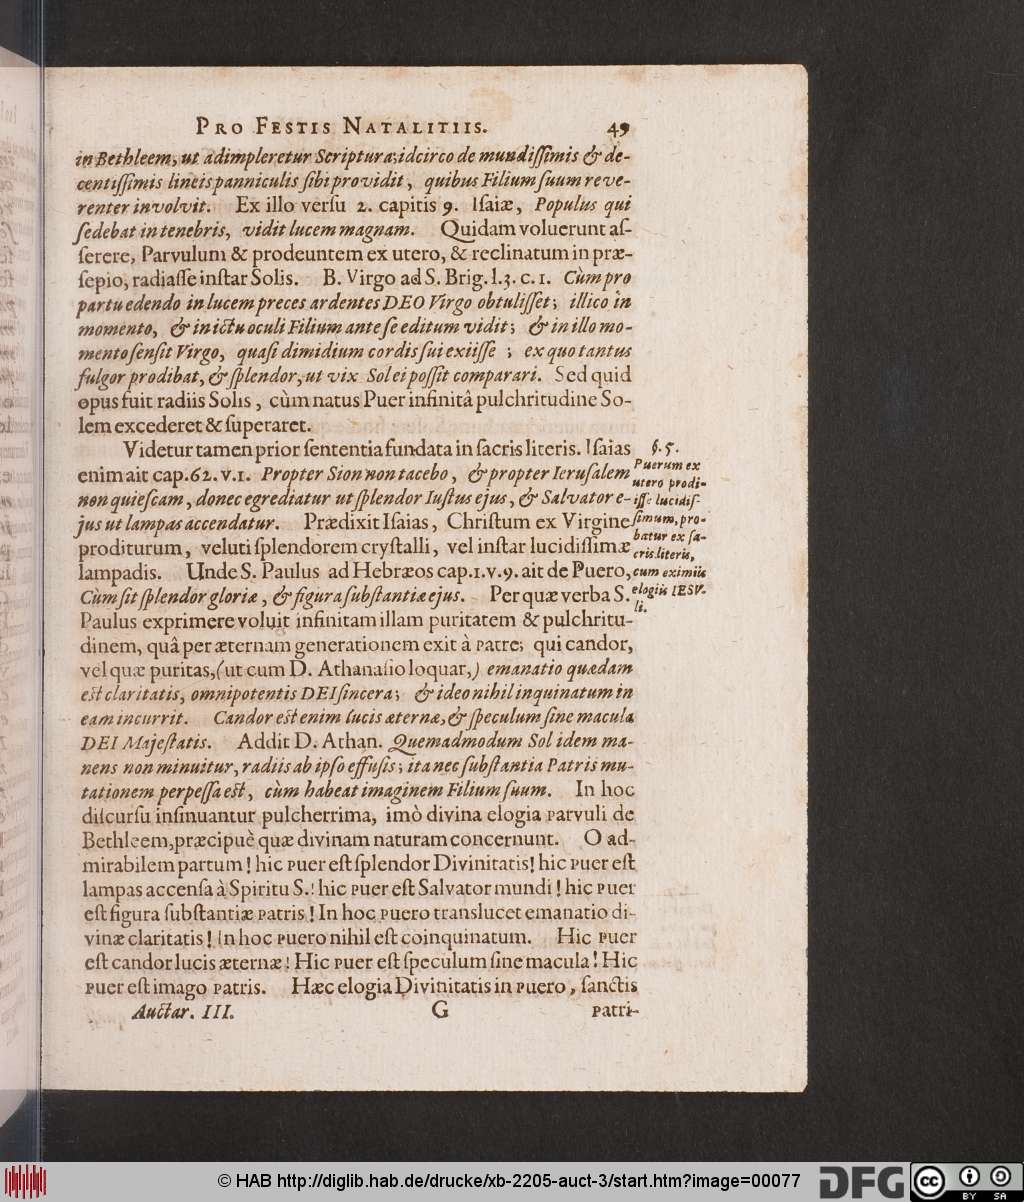 PRO FESTIS NATALITIIS. 49
in Bethleem, ut adimpleretur Scriptura; idcirco de mundiſſimis & de-
centiſſimis lineis panniculis ſibi providit, quibus Filium ſuum reve-
renter involvit. Ex illo verſu 2. capitis 9. Iſaiæ, Populus qui
ſedebat in tenebris, vidit lucem magnam. Quidam voluerunt aſ-
ſerere, Parvulum & prodeuntem ex utero, & reclinatum in præ-
ſepio, radiaſſe inſtar Solis. B. Virgo ad S. Brig. l.3. c. 1. Cùm pro
partu edendo in lucem preces ardentes DEO Virgo obtuliſſet; illico in
momento, & in ictu oculi Filium ante ſe editum vidit; & in illo mo-
mento ſenſit Virgo, quaſi dimidium cordis ſui exiiſſe ; ex quo tantus
fulgor prodibat, & ſplendor, ut vix Sol ei poſſit comparari. Sed quid
opus fuit radiis Solis, cùm natus Puer infinitâ pulchritudine So-
lem excederet & ſuperaret.
Videtur tamen prior ſententia fundata in ſacris literis. Iſaias
enim ait cap. 62. v. 1. Propter Sion non tacebo, & propter Ieruſalem
non quieſcam, donec egrediatur ut ſplendor Iuſtus ejus, & Salvator e-
jus ut lampas accendatur. Prædixit Iſaias, Chriſtum ex Virgine
proditurum, veluti ſplendorem cryſtalli, vel inſtar lucidiſſimæ
lampadis. Unde S. Paulus ad Hebræos cap. 1. v. 9. ait de Puero,
Cùm ſit ſplendor gloriæ, & figura ſubſtantiæ ejus. Per quæ verba S.
Paulus exprimere voluit infinitam illam puritatem & pulchritu-
dinem, quâ per æternam generationem exit à Patre; qui candor,
vel quæ puritas, (ut cum D. Athanaſio loquar,) emanatio quædam
eſt claritatis, omnipotentis DEI ſincera; & ideo nihil inquinatum in
eam incurrit. Candor eſt enim lucis æternæ, & ſpeculum ſine macula
DEI Majeſtatis. Addit D. Athan. Quemadmodum Sol idem ma-
nens non minuitur, radiis ab ipſo effuſis; ita nec ſubſtantia Patris mu-
tationem perpeſſa eſt, cùm habeat imaginem Filium ſuum. In hoc
diſcurſu inſinuantur pulcherrima, imò divina elogia Parvuli de
Bethleem, præcipuè quæ divinam naturam concernunt. O ad-
mirabilem partum! hic Puer eſt ſplendor Divinitatis! hic Puer eſt
lampas accenſa à Spiritu S.! hic Puer eſt Salvator mundi! hic Puer
eſt figura ſubſtantiæ Patris! In hoc Puero translucet emanatio di-
vinæ claritatis! In hoc Puero nihil eſt coinquinatum. Hic Puer
eſt candor lucis æternæ! Hic Puer eſt ſpeculum ſine macula! Hic
Puer eſt imago Patris. Hæc elogia Divinitatis in Puero, ſanctis
Auctar. III. G Patri-
§. 5.
Puerum ex
utero prodi-
iſſe lucidiſ-
ſimum, pro-
batur ex ſa-
cris literis,
cum eximiis
elogiis IESU-
li.
© HAB http://diglib.hab.de/drucke/xb-2205-auct-3/start.htm?image=00077
DFG
cc
BY SA